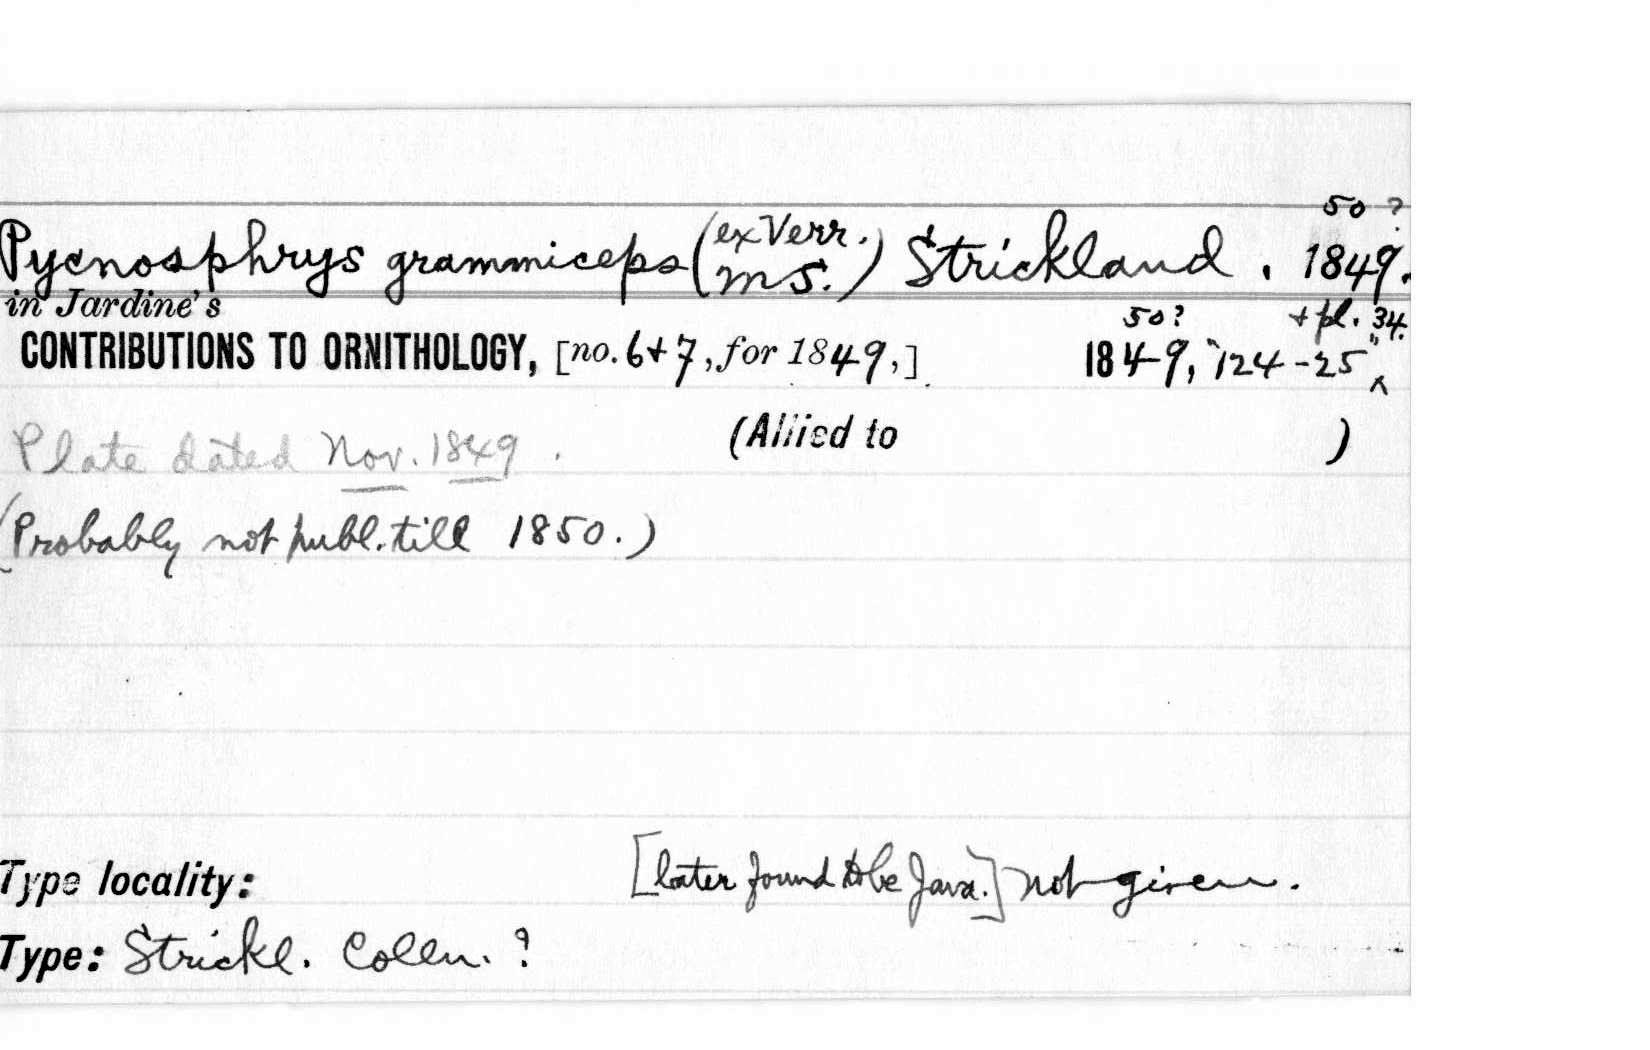 50 ?
Pycnosphrys grammiceps (ex Verr. MS.) Strickland. 1849.
in Jardine's
50? + pl. 34.
CONTRIBUTIONS TO ORNITHOLOGY, [no. 6+7, for 1849,] 1849, "124-25"
Plate dated Nov. 1849. (Allied to )
(Probably not publ. till 1850.)
Type locality: [later found to be Java.] not given.
Type: Strickl. Colln. ?